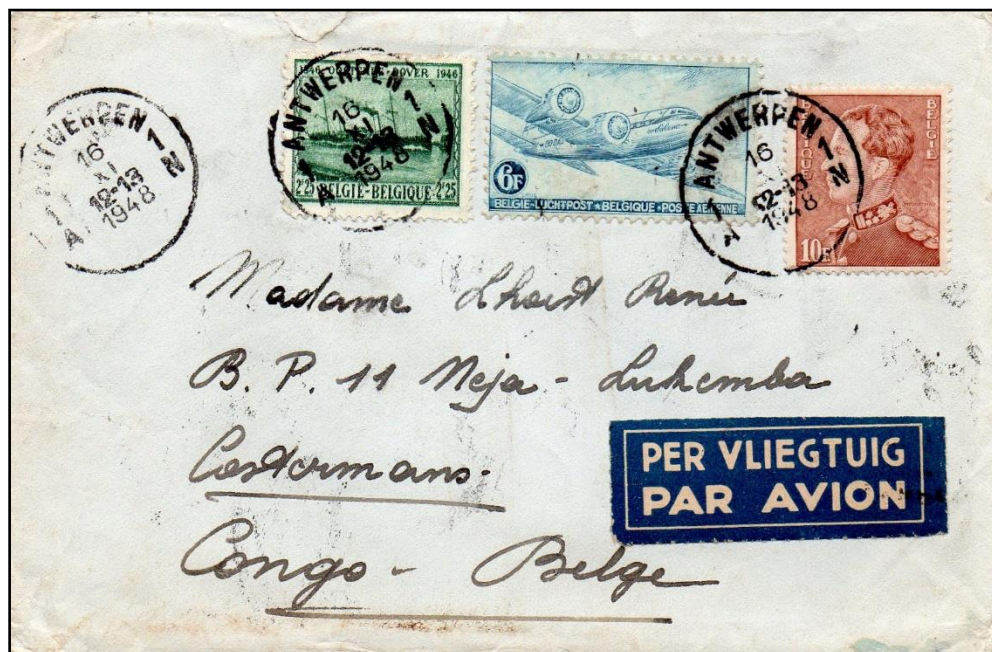 ANTWERPEN 1
16
XI
12-13
1948
A N
1946 OOSTENDE-DOVER 1946
ANTWERPEN 1
16
XI
12-13
1948
A N
2F25 BELGIË-BELGIQUE 2F25
6F
BELGIE-LUCHTPOST★BELGIQUE★POSTE AERIENNE
ANTWERPEN 1
16
XI
12-13
1948
A N
BELGIQUE BELGIË
10F
Madame Lhoist René
B. P. 11 Neja - Lukemba
Costermans.
Congo - Belge
PER VLIEGTUIG
PAR AVION